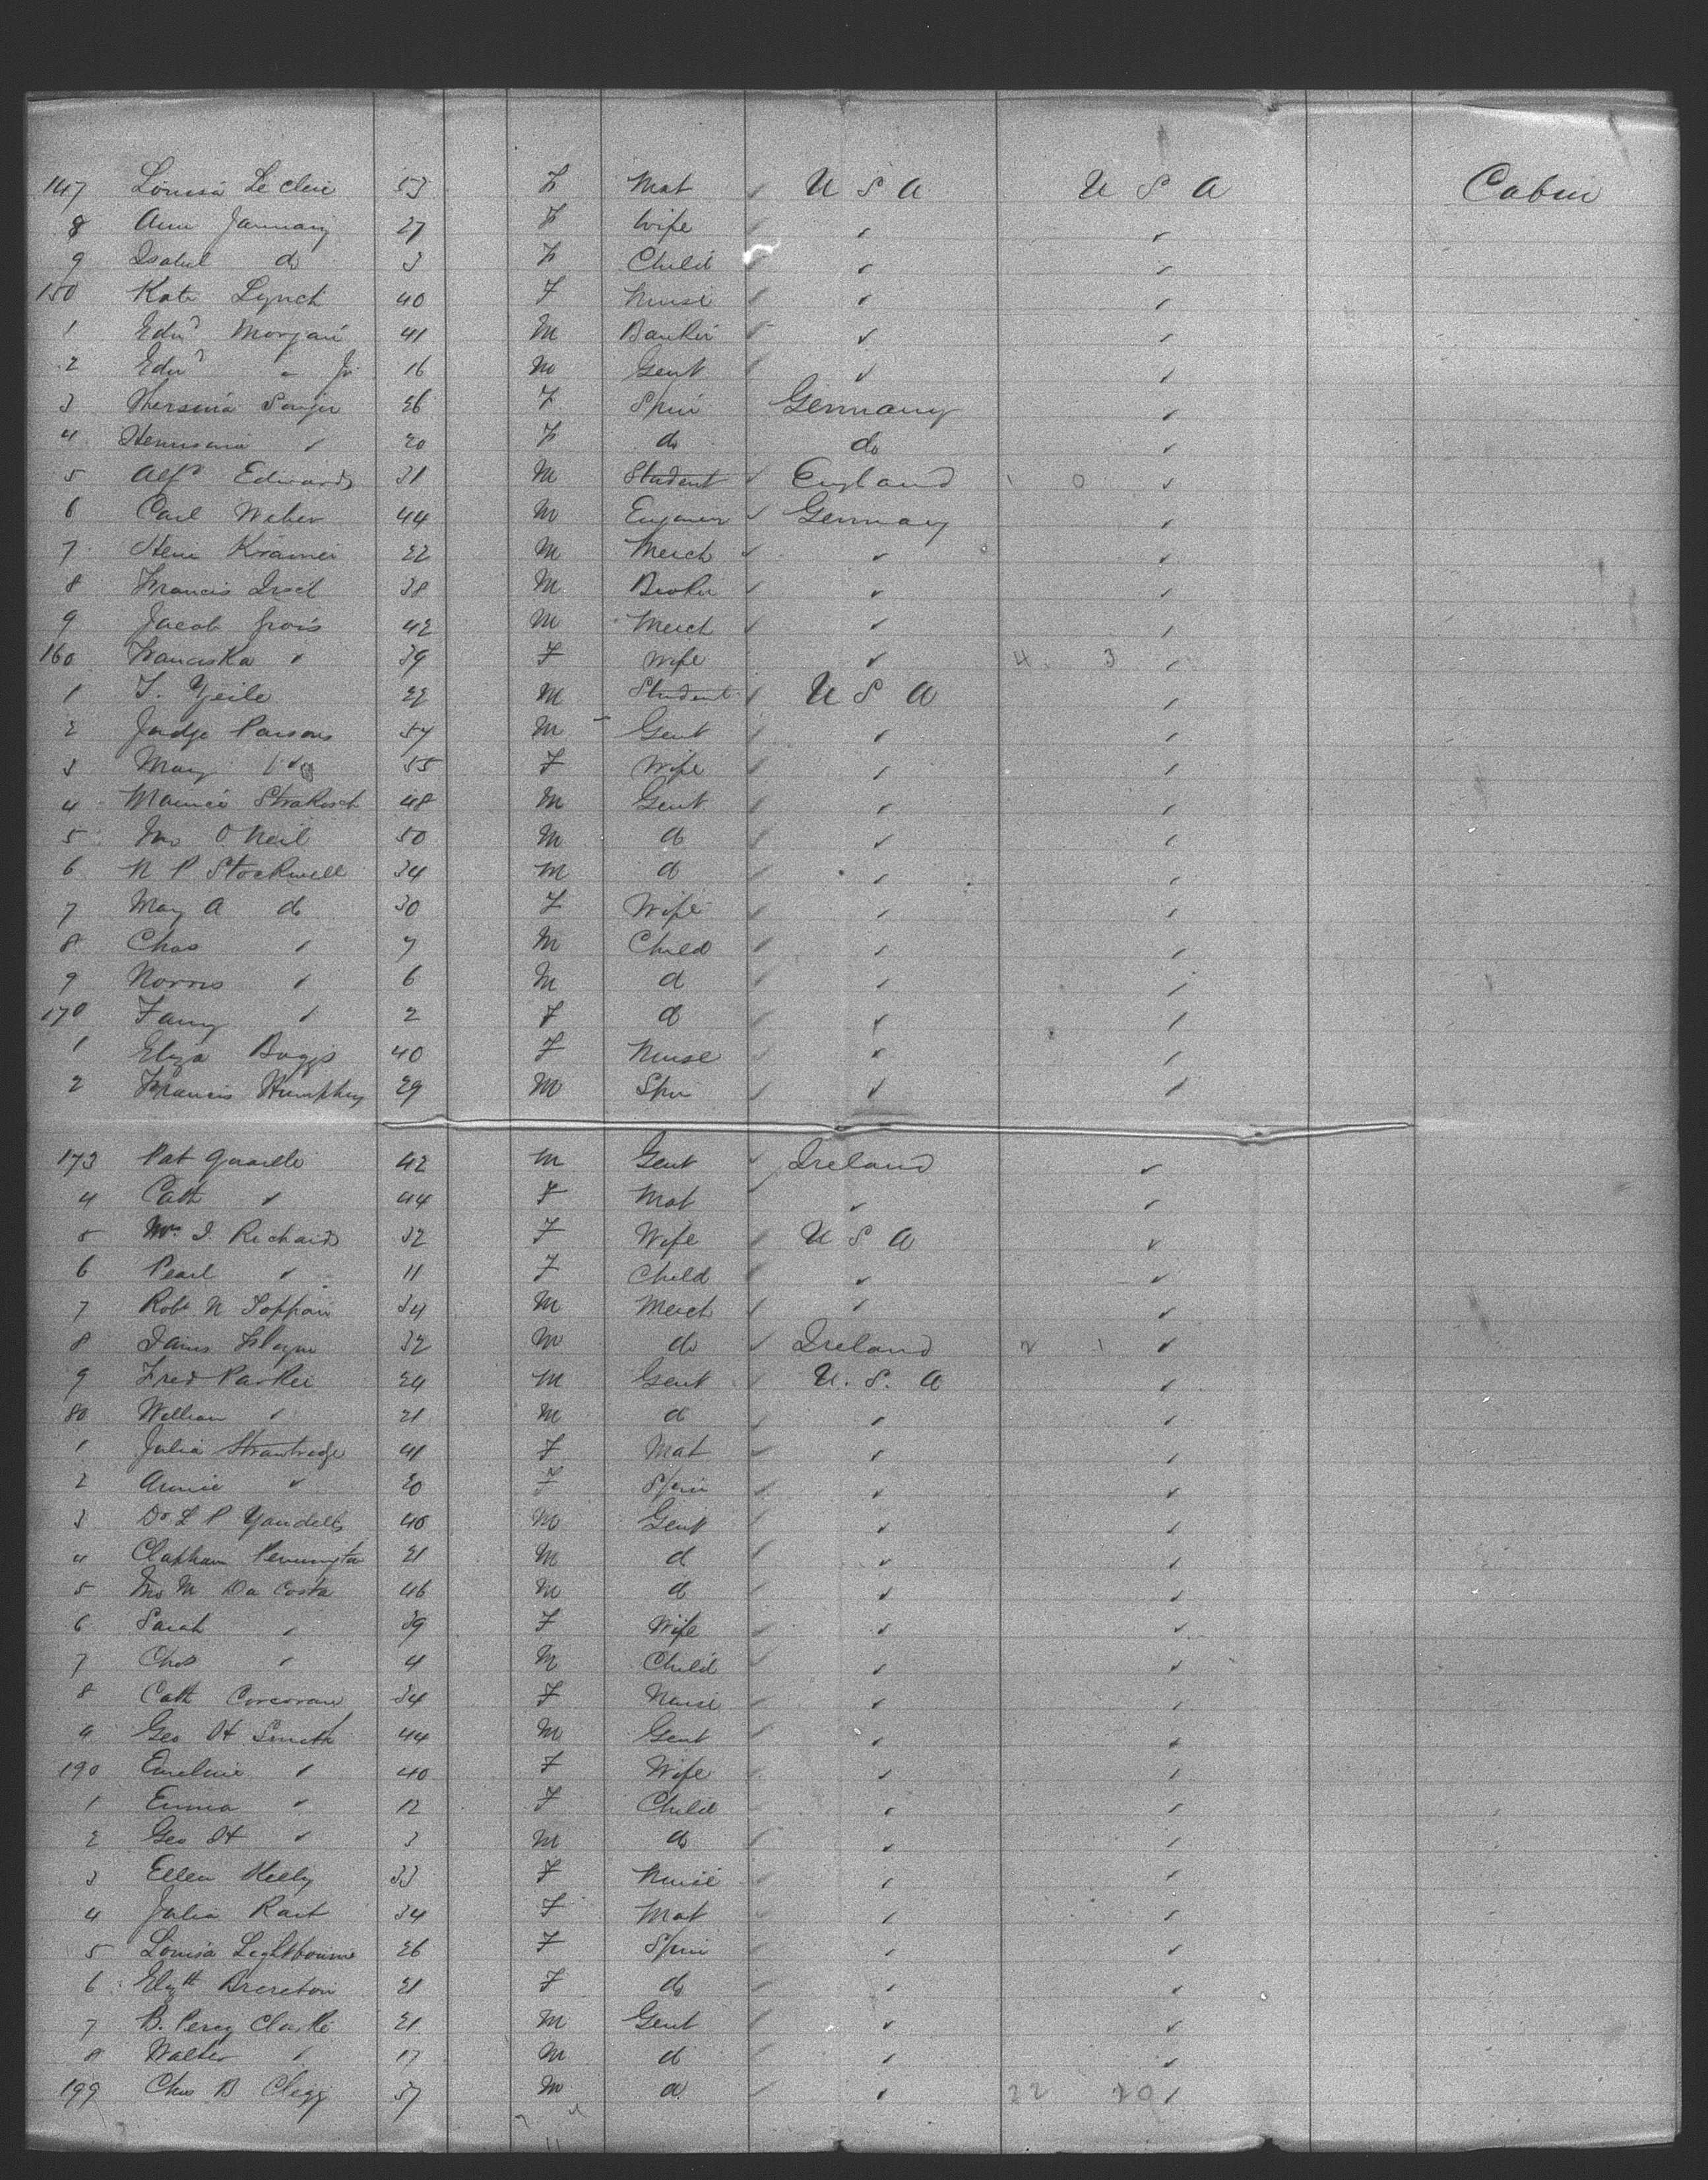 147 Louisa Le Clere 53 F Mat ✓ U S A U S A Cabin
8 Ann January 27 F Wife ✓ ✓
9 Isabel do 3 F Child ✓ ✓ ✓
150 Kate Lynch 40 F Nurse ✓ ✓ ✓
1 Edwd Morgan 41 M Banker ✓ ✓ ✓
2 Edwd " Jr 16 M Gent ✓ ✓ ✓
3 26 F Spin Germany ✓
4 ✓ 20 F do do ✓
5 Alfd Edwards 31 M Student ✓ England 1 0 ✓
6 Carl Weber 44 M Engineer ✓ Germany ✓
7 Kramer 22 M Merch ✓ ✓ ✓
8 Francis 38 M Broker ✓ ✓ ✓
9 Jacob Grois 42 M Merch ✓ ✓ ✓
160 Franciska ✓ 39 F Wife ✓ 4 3 ✓
1 T. Zeile 22 M Student ✓ U S A ✓
2 Judge Parsons 57 M Gent ✓ ✓
3 Mary 55 F Wife ✓ ✓ ✓
4 Maurice Strakosch 48 M Gent ✓ ✓ ✓
5 Jno O Neil 50 M do ✓ ✓ ✓
6 N P Stockwell 34 M do ✓ ✓ ✓
7 May A do 30 F Wife ✓ ✓ ✓
8 Chas ✓ 7 M Child ✓ ✓ ✓
9 Norris ✓ 6 M do ✓ ✓ ✓
170 Fanny ✓ 2 F do ✓ ✓ ✓
1 Eliza Boggs 40 F Nurse ✓ ✓ ✓
2 Francis Humphrey 29 M Spin ✓ ✓ ✓
173 Pat 42 M Gent ✓ Ireland ✓
4 Cath ✓ 44 F Mat ✓ ✓ ✓
5 Mrs I. Richards 32 F Wife ✓ U S A ✓
6 Pearl ✓ 11 F Child ✓ ✓ ✓
7 Robt N Toppan 34 M Merch ✓ ✓ ✓
8 James 32 M do ✓ Ireland 2 1 ✓
9 Fred Parker 24 M Gent ✓ U. S. A ✓
80 William ✓ 21 M do ✓ ✓ ✓
1 Julia Strawbridge 41 F Mat ✓ ✓ ✓
2 Annie ✓ 20 F Spin ✓ ✓ ✓
3 Dr L P Yandell 40 M Gent ✓ ✓ ✓
4 Clapham Pennington 21 M do ✓ ✓ ✓
5 Jno M Da Costa 46 M do ✓ ✓ ✓
6 Sarah ✓ 39 F Wife ✓ ✓ ✓
7 Chas ✓ 4 M Child ✓ ✓ ✓
8 Cath Corcoran 34 F Nurse ✓ ✓ ✓
9 Geo H Smith 44 M Gent ✓ ✓ ✓
190 Emeline ✓ 40 F Wife ✓ ✓ ✓
1 Emma ✓ 12 F Child ✓ ✓ ✓
2 Geo H ✓ 3 M do ✓ ✓ ✓
3 Ellen Kelly 33 F Nurse ✓ ✓ ✓
4 Julia Rait 34 F Mat ✓ ✓ ✓
5 Louisa Lightbourne 26 F Spin ✓ ✓ ✓
6 Elizth Brereton 21 F do ✓ ✓ ✓
7 B. Percy Clarke 21 M Gent ✓ ✓ ✓
8 Walter ✓ 17 M do ✓ ✓ ✓
199 Chas B Clegg 57 M do ✓ ✓ 22 20 ✓